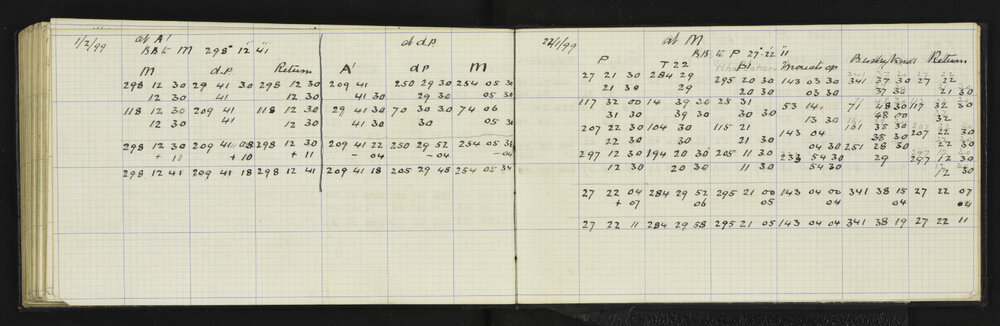 1/2/99
at A'
BB to M 298° 12' 41"
M d.P. Return
298 12 30 29 41 30 298 12 30
12 30 41 12 30
118 12 30 209 41 118 12 30
12 30 41 12 30
298 12 30 209 41 08 298 12 30
+ 11 + 10 + 11
298 12 41 209 41 18 298 12 41
at d.P.
A' dP M
209 41 250 29 30 254 05 30
41 30 29 30 05 30
29 41 30 70 30 30 74 06
41 30 30 05 30
209 41 22 250 29 52 254 05 38
- 04 - 04 - 04
209 41 18 205 29 48 254 05 34
22/1/99
at M
BB to P 27° 22' 11"
P T 22 P1 Return
27 21 30 284 29 295 20 30 143 03 30 341 37 30 27 22
21 30 29 20 30 03 30 37 30 21 30
117 32 00 14 39 30 25 31 53 14 71 48 30 117 32 30
31 30 39 30 30 30 13 30 48 00 32
207 22 30 104 30 115 21 143 04 161 38 30 207 22 30
22 30 30 21 30 04 30 38 30 22 30
297 12 30 194 20 30 205 11 30 233 54 30 251 28 30 297 12 30
12 30 20 30 11 30 54 30 29 12 30
27 22 04 284 29 52 295 21 00 143 04 00 341 38 15 27 22 07
+ 07 06 05 04 04 04
27 22 11 284 29 58 295 21 05 143 04 04 341 38 19 27 22 11